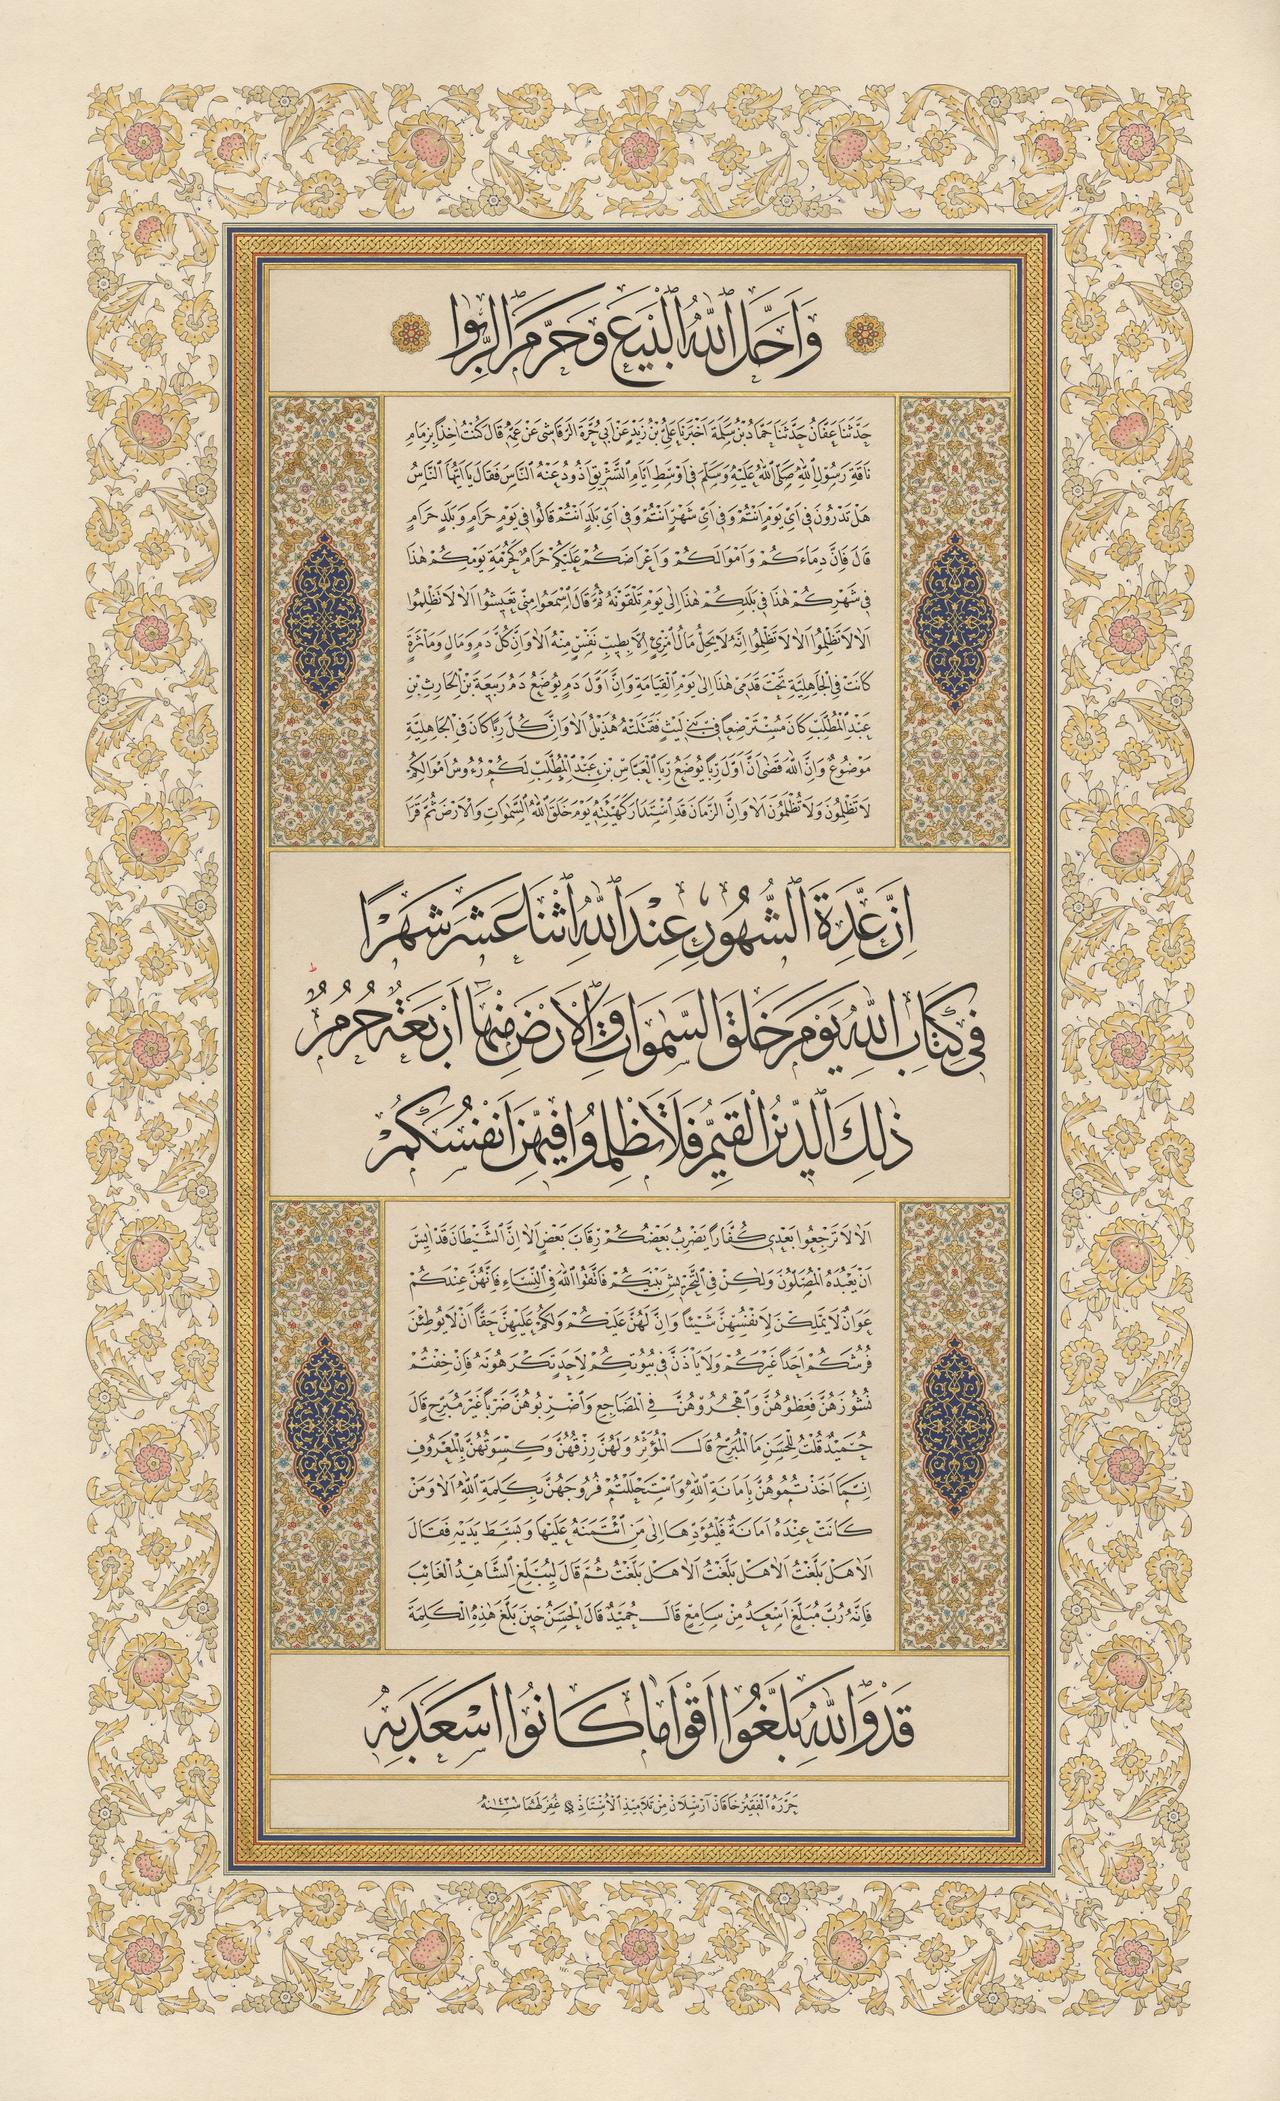 وَاَحَلَّ اللّٰهُ الْبَيْعَ وَحَرَّمَ الرِّبٰوا
حَدَّثَنَا عَفَّانُ حَدَّثَنَا حَمَّادُ بْنُ سَلَمَةَ اَخْبَرَنَا عَلِيُّ بْنُ زَيْدٍ عَنْ اَبِي حُرَّةَ الرَّقَاشِيِّ عَنْ عَمِّهِ قَالَ كُنْتُ اٰخِذًا بِزِمَامِ
نَاقَةِ رَسُولِ اللّٰهِ صَلَّى اللّٰهُ عَلَيْهِ وَسَلَّمَ فِي اَوْسَطِ اَيَّامِ التَّشْرِيقِ اَذُودُ عَنْهُ النَّاسَ فَقَالَ يَا اَيُّهَا النَّاسُ
هَلْ تَدْرُونَ فِي اَيِّ يَوْمٍ اَنْتُمْ وَفِي اَيِّ شَهْرٍ اَنْتُمْ وَفِي اَيِّ بَلَدٍ اَنْتُمْ قَالُوا فِي يَوْمٍ حَرَامٍ وَبَلَدٍ حَرَامٍ
قَالَ فَاِنَّ دِمَاءَكُمْ وَاَمْوَالَكُمْ وَاَعْرَاضَكُمْ عَلَيْكُمْ حَرَامٌ كَحُرْمَةِ يَوْمِكُمْ هٰذَا
فِي شَهْرِكُمْ هٰذَا فِي بَلَدِكُمْ هٰذَا اِلٰى يَوْمِ تَلْقَوْنَهُ ثُمَّ قَالَ اسْمَعُوا مِنِّي تَعِيشُوا اَلَا لَا تَظْلِمُوا
اَلَا لَا تَظْلِمُوا اَلَا لَا تَظْلِمُوا اِنَّهُ لَا يَحِلُّ مَالُ امْرِئٍ اِلَّا بِطِيبِ نَفْسٍ مِنْهُ اَلَا وَاِنَّ كُلَّ دَمٍ وَمَالٍ وَمَأْثَرَةٍ
كَانَتْ فِي الْجَاهِلِيَّةِ تَحْتَ قَدَمِي هٰذِهِ اِلٰى يَوْمِ الْقِيَامَةِ وَاِنَّ اَوَّلَ دَمٍ يُوضَعُ دَمُ رَبِيعَةَ بْنِ الْحَارِثِ بْنِ
عَبْدِ الْمُطَّلِبِ كَانَ مُسْتَرْضَعًا فِي بَنِي لَيْثٍ فَقَتَلَتْهُ هُذَيْلٌ اَلَا وَاِنَّ كُلَّ رِبًا كَانَ فِي الْجَاهِلِيَّةِ
مَوْضُوعٌ وَاِنَّ اللّٰهَ قَضٰى اَنَّ اَوَّلَ رِبًا يُوضَعُ رِبَا الْعَبَّاسِ بْنِ عَبْدِ الْمُطَّلِبِ لَكُمْ رُءُوسُ اَمْوَالِكُمْ
لَا تَظْلِمُونَ وَلَا تُظْلَمُونَ اَلَا وَاِنَّ الزَّمَانَ قَدِ اسْتَدَارَ كَهَيْئَتِهِ يَوْمَ خَلَقَ اللّٰهُ السَّمٰوَاتِ وَالْاَرْضَ ثُمَّ قَرَاَ
اِنَّ عِدَّةَ الشُّهُورِ عِنْدَ اللّٰهِ اثْنَا عَشَرَ شَهْرًا
فِي كِتَابِ اللّٰهِ يَوْمَ خَلَقَ السَّمٰوَاتِ وَالْاَرْضَ مِنْهَا اَرْبَعَةٌ حُرُمٌ
ذٰلِكَ الدِّينُ الْقَيِّمُ فَلَا تَظْلِمُوا فِيهِنَّ اَنْفُسَكُمْ
اَلَا لَا تَرْجِعُوا بَعْدِي كُفَّارًا يَضْرِبُ بَعْضُكُمْ رِقَابَ بَعْضٍ اَلَا اِنَّ الشَّيْطَانَ قَدْ اَيِسَ
اَنْ يَعْبُدَهُ الْمُصَلُّونَ وَلٰكِنْ فِي التَّحْرِيشِ بَيْنَكُمْ فَاتَّقُوا اللّٰهَ فِي النِّسَاءِ فَاِنَّهُنَّ عِنْدَكُمْ
عَوَانٌ لَا يَمْلِكْنَ لِاَنْفُسِهِنَّ شَيْئًا وَاِنَّ لَهُنَّ عَلَيْكُمْ وَلَكُمْ عَلَيْهِنَّ حَقًّا اَنْ لَا يُوطِئْنَ
فُرُشَكُمْ اَحَدًا غَيْرَكُمْ وَلَا يَأْذَنَّ فِي بُيُوتِكُمْ لِاَحَدٍ تَكْرَهُونَهُ فَاِنْ خِفْتُمْ
نُشُوزَهُنَّ فَعِظُوهُنَّ وَاهْجُرُوهُنَّ فِي الْمَضَاجِعِ وَاضْرِبُوهُنَّ ضَرْبًا غَيْرَ مُبَرِّحٍ قَالَ
حُمَيْدٌ قُلْتُ لِلْحَسَنِ مَا الْمُبَرِّحُ قَالَ الْمُؤَثِّرُ وَلَهُنَّ رِزْقُهُنَّ وَكِسْوَتُهُنَّ بِالْمَعْرُوفِ
اِنَّمَا اَخَذْتُمُوهُنَّ بِاَمَانَةِ اللّٰهِ وَاسْتَحْلَلْتُمْ فُرُوجَهُنَّ بِكَلِمَةِ اللّٰهِ اَلَا وَمَنْ
كَانَتْ عِنْدَهُ اَمَانَةٌ فَلْيُؤَدِّهَا اِلٰى مَنِ ائْتَمَنَهُ عَلَيْهَا وَبَسَطَ يَدَيْهِ فَقَالَ
اَلَا هَلْ بَلَّغْتُ اَلَا هَلْ بَلَّغْتُ اَلَا هَلْ بَلَّغْتُ ثُمَّ قَالَ لِيُبَلِّغِ الشَّاهِدُ الْغَائِبَ
فَاِنَّهُ رُبَّ مُبَلَّغٍ اَسْعَدُ مِنْ سَامِعٍ قَالَ حُمَيْدٌ قَالَ الْحَسَنُ حِينَ بَلَّغَ هٰذِهِ الْكَلِمَةَ
قَدْ وَاللّٰهِ بَلَّغُوا اَقْوَامًا كَانُوا اَسْعَدَ بِهِ
حَرَّرَهُ الْفَقِيرُ خَاقَانْ آرْسْلَانْ مِنْ تَلَامِيذِ الْاُسْتَاذِ غُفِرَ لَهُمَا سنة